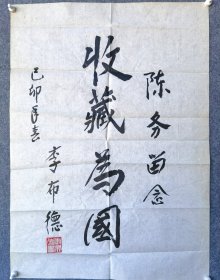 陈务留念
收藏為國
己卯年春
李布德